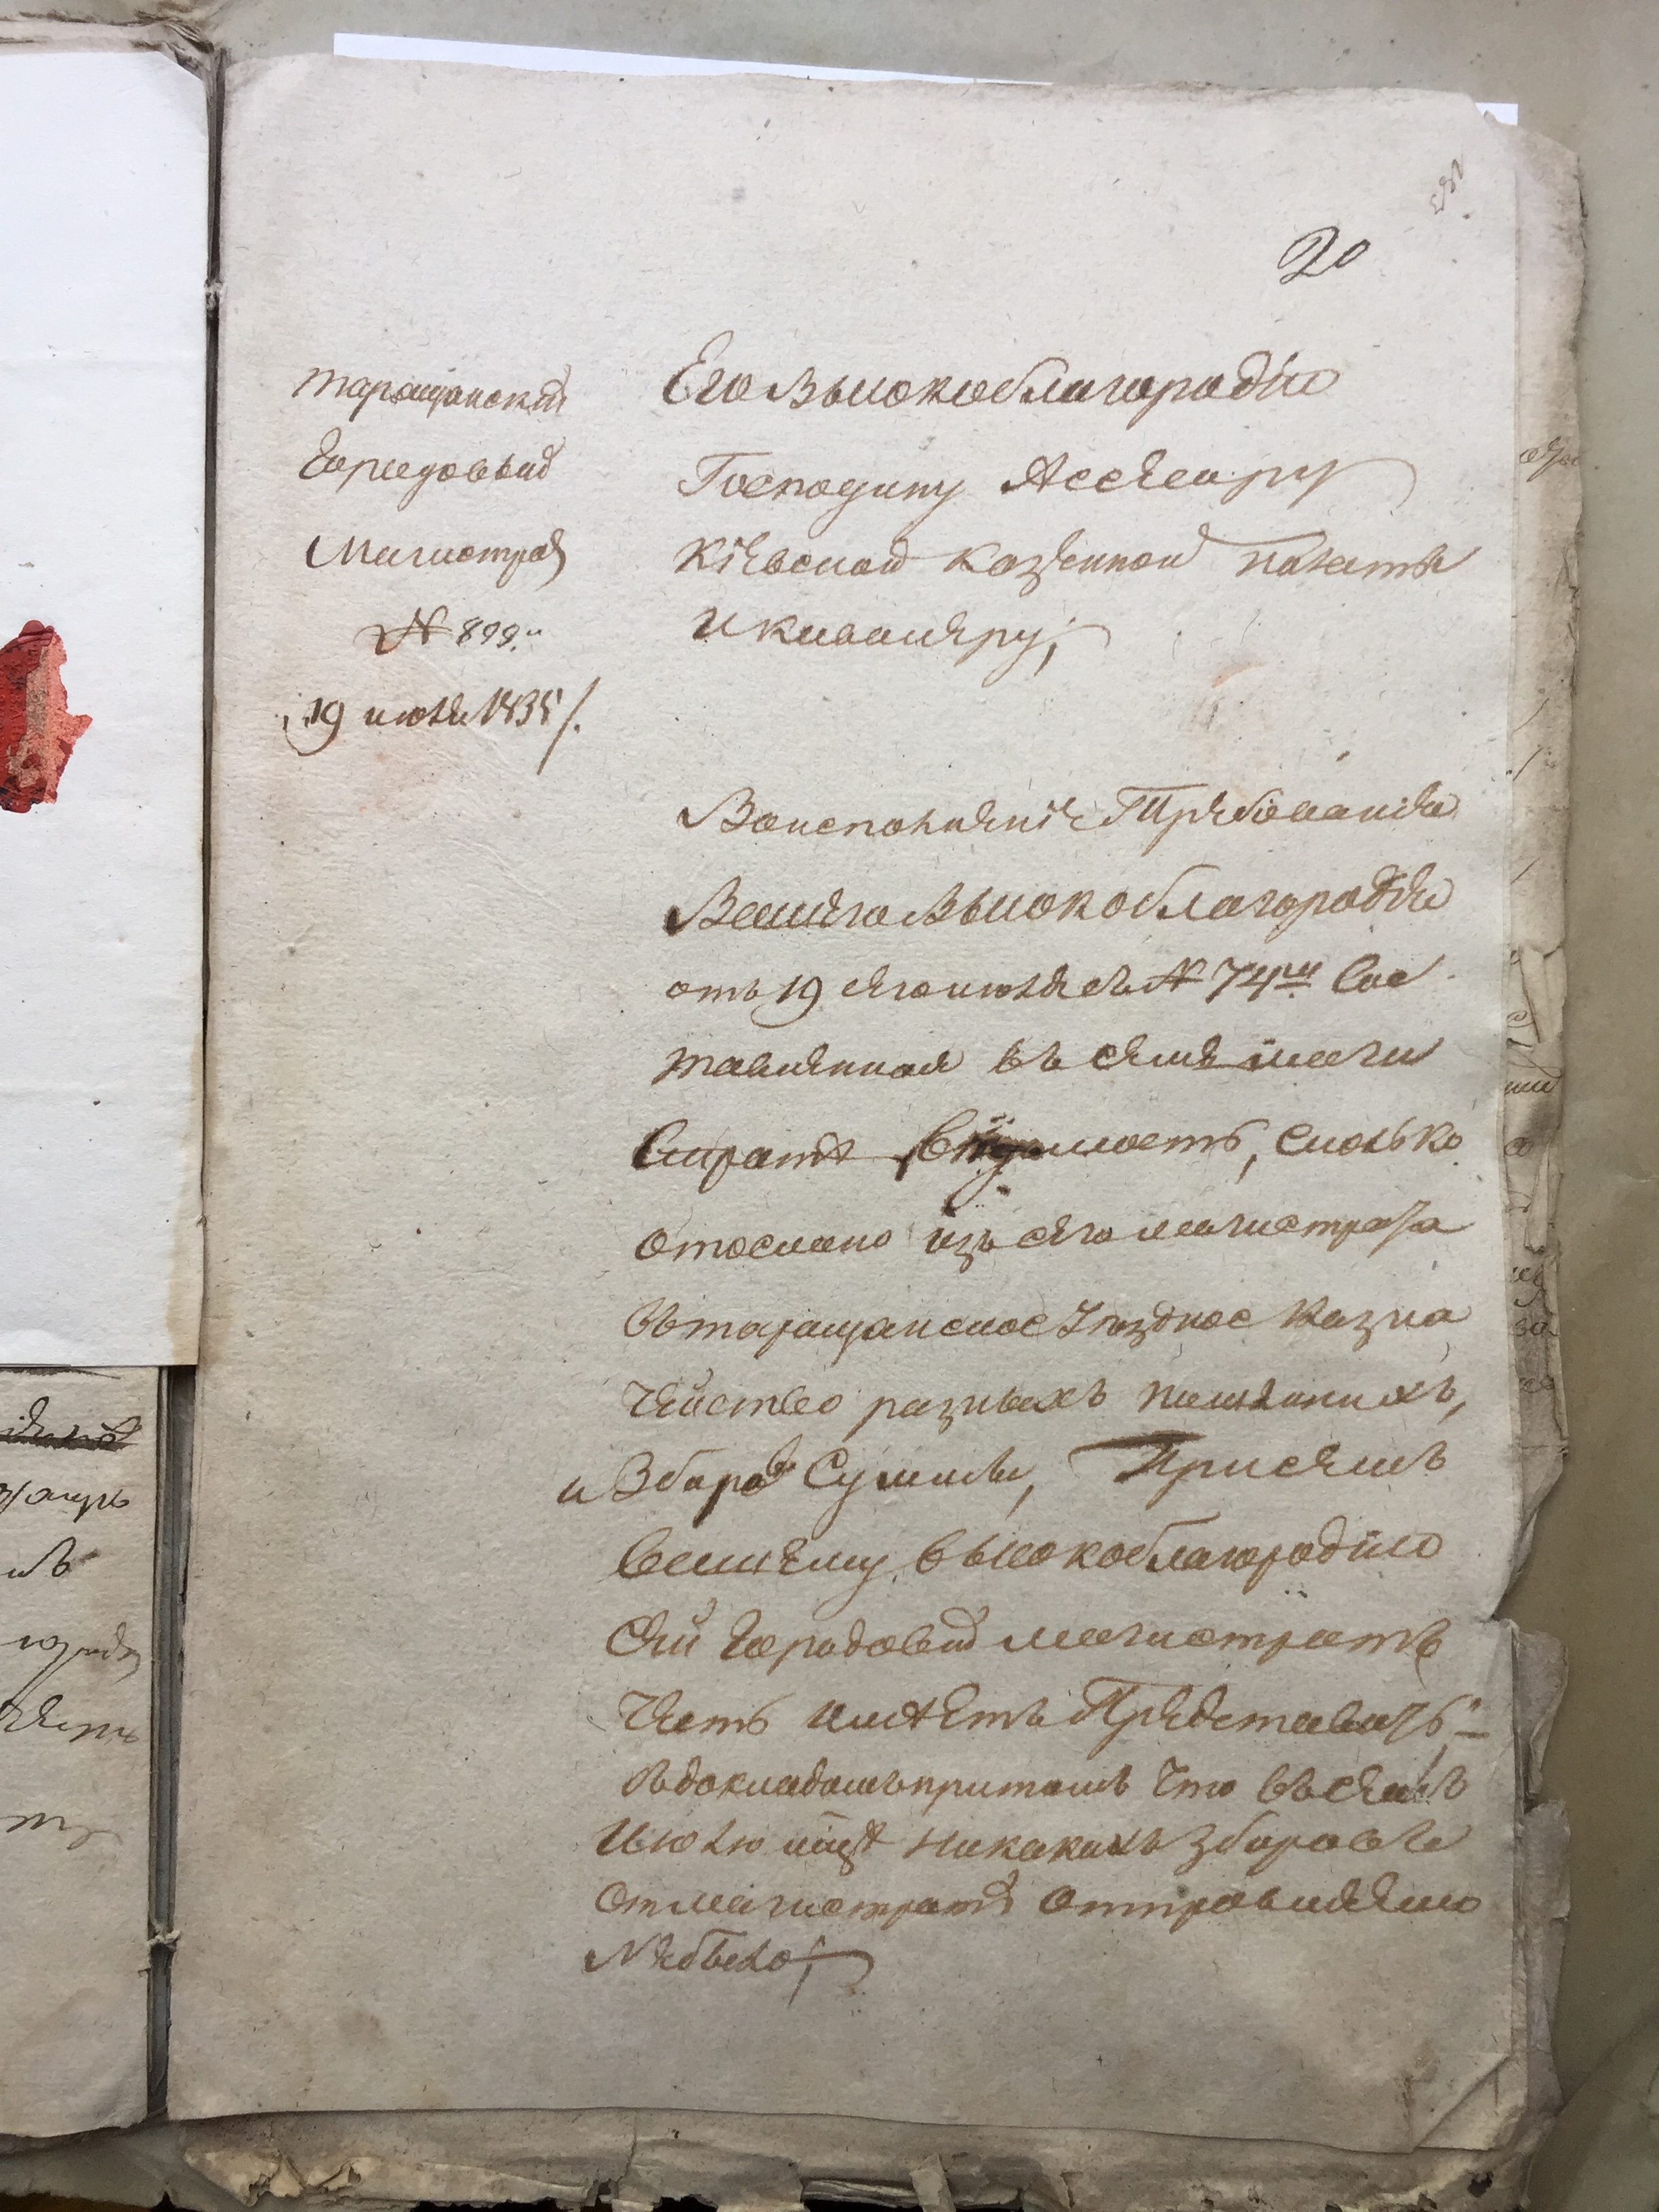 20
Таращанскій
Городовый
Магистрат
№ 899.
19 июля 1835/.
Его Высокоблагородію
Господину Ассесору
Кіевской казенной палаты
и кавалеру;
Воисполненіе Требованія
Вашего Высокоблагородія
отъ 19 сего июля съ № 74мъ Сос
тавленная въ семъ маги
стратѣ Вѣдомость, сколько
отослано изъ сего магистрата
въ таращанское Уѣздное казна
чейство разныхъ пошлинныхъ,
и Зборовъ Суммы, Присемъ
вашему высокоблагородію
Сей Городовый магистратъ
честь имѣетъ Представить, –
съ докладомъ притомъ что въ семъ
июлю никакихъ зборовъ
отъ магистрата отправляемо
Небыло;